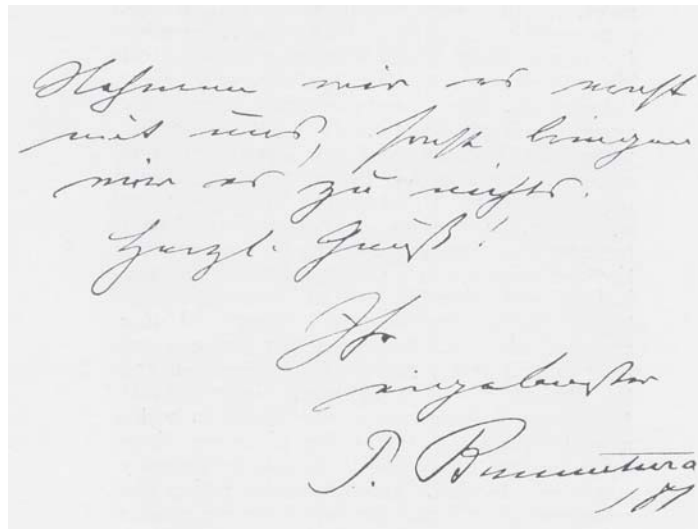 Nehmen wir es ernst
mit uns, sonst bringen
wir es zu nichts.
Herzl. Gruß!
Ihr
ergebenster
P. Bonaventura